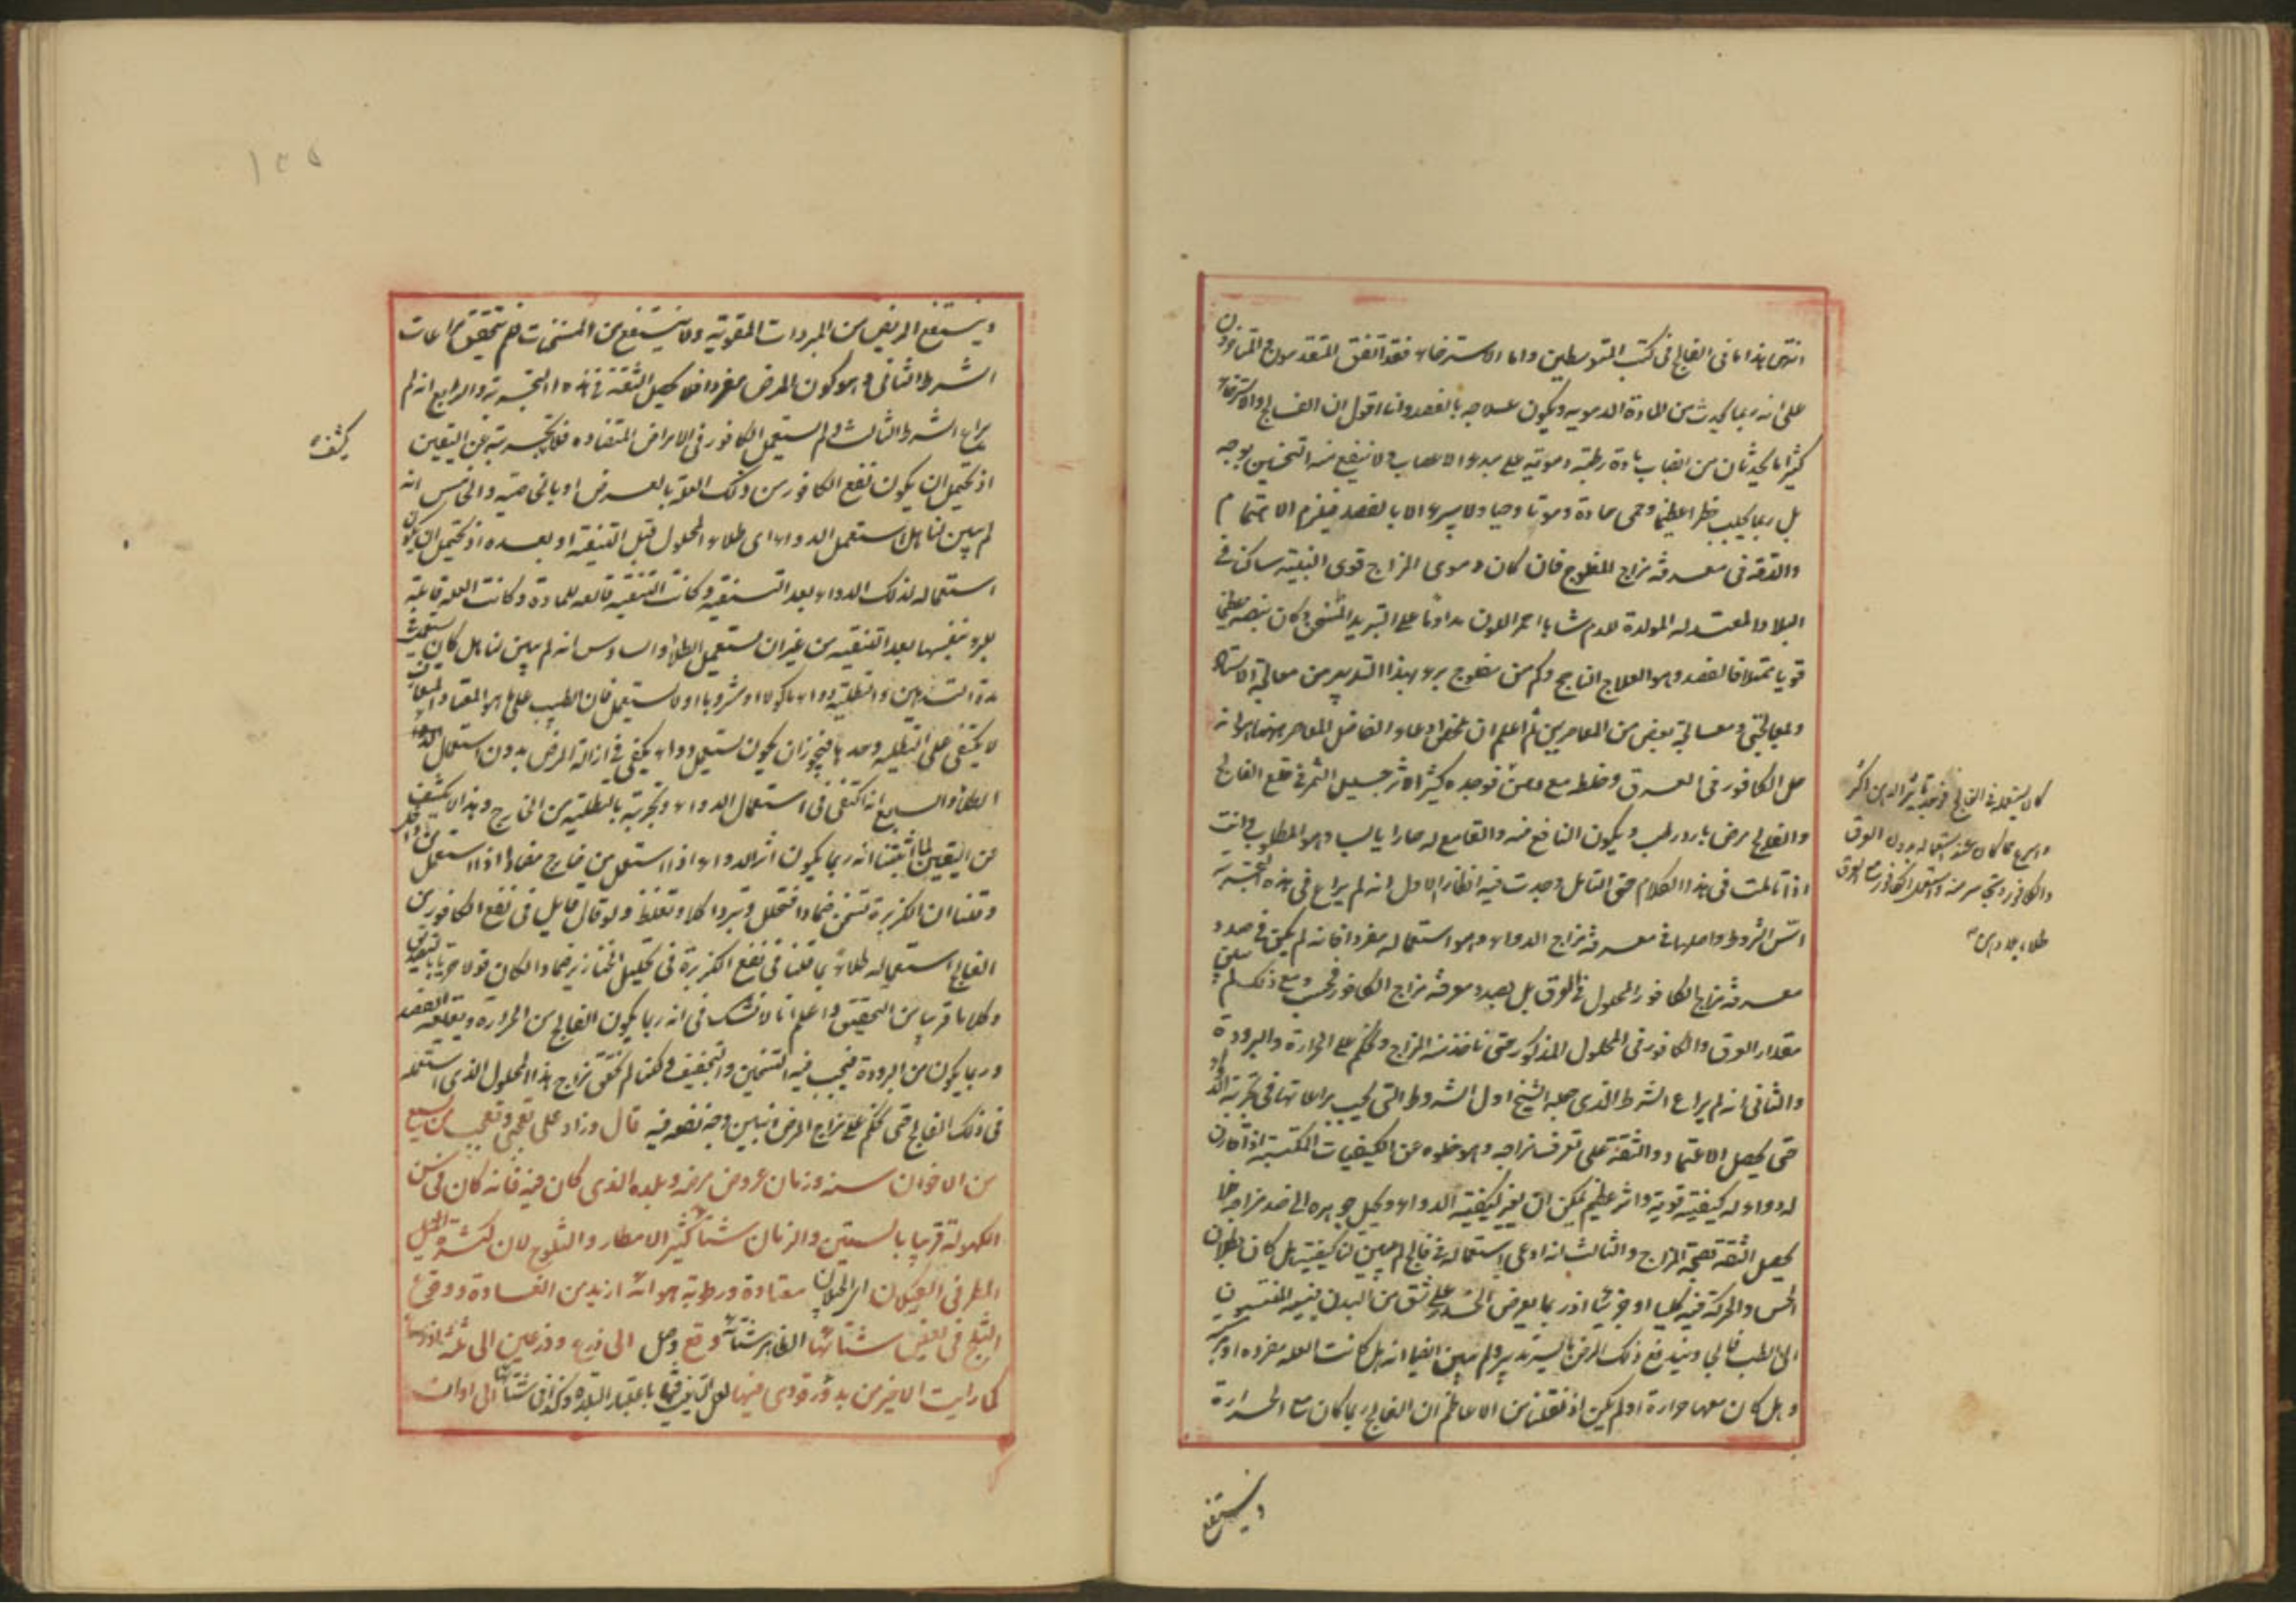 انتهى هذا ما فى الفالج فى كتب المتوسطين واما الاسترخاء فقد اتفق المتقدمون والمتاخرون
على انه ربما يحدث من المادة الدمويه ويكون علاجه بالفصد وانا اقول ان الفالج والاسترخاء
كثيرا ما يحدثان من انصباب مادة رطبة دموية على مبدء الاعصاب ولا ينفع منه التسخين بوجه
بل ربما يجلب خطرا عظيما وحمى حادة وموتا وحيا ولا يبرء الا بالفصد فيلزم الاهتمام
والدقة فى معرفة مزاج المفلوج فان كان دموى المزاج قوى البنية ساكن فى
البلاد المعتدله المولدة للدم شابا احمر اللون مداوما على التبريد المسخن وكان نبضه عظيما
قويا ممتلاء فالفصد وهو العلاج الناجح وكم من مفلوج برء بهذا التدبير من معالجة الاستاد
ولمعالجتى ومعالجة بعض من المعاصرين ثم اعلم ان ملخص ادعاء الفاضل المعاصر هنا هو انه
حل الكافور فى العرق وخلط مع دهن فوجده كثير الاثر جميل الثمر فى قلع الفالج
والفالج مرض بارد رطب ويكون النافع منه والقامع له حارا يابسا وهو المطلوب وانت
اذا تاملت فى هذا الكلام حق التامل وجدت فيه انظار الاول انه لم يراع فى هذه التجربة
اسّ الشروط واصلها فى معرفة مزاج الدواء وهو استعماله مفردا فانه لم يكن فى صدد
معرفة مزاج الكافور المحلول فى العرق بل بصدد معرفة مزاج الكافور فحسب ومع ذلك لم يبين
مقدار العرق والكافور فى المحلول المذكور حتى ناخذ منه المزاج ونحكم على الحرارة والبرودة
والثانى انه لم يراع الشرط الذى جعله الشيخ اول الشروط التى يجب مراعاتها فى تجربة الدواء
حتى يحصل الاعتماد والثقة على تعرف مزاجه وهو خلوه عن الكيفيات المكتسبة اذا قارن
له دواء له كيفية قوية واثر عظيم يمكن ان يغير كيفية الدواء ويحيل جوهره الى ضد مزاجه فلا
يحصل الثقة بصحة المزاج والثالث انه ادعى استعماله فى فالج لم يبين لنا كيفيته هل كان بطلان
الحس والحركة فيه كليا او جزئيا اذ ربما يعرض الخدر على شق من البدن فيسميه المنتسبون
الى الطب فالجا ويندفع ذلك المرض بايسر تدبير ولم يبين ايضا انه هل كانت العله مفرده او مركبه
وهل كان معها حرارة او لم يكن اذ نقلنا من الاعاظم ان الفالج ربما كان مع الحرارة
كان يستعمله فى الفالج فوجد تاثير الدهن اكثر
واسرع مما كان عند استعماله بدون العرق
والكافور
طلاء بلا دهن
وينتفع
وينتفع المريض من المبردات المقوية ولا ينتفع من المسخنات فلم يتحقق مراعات
الشرط الثانى وهو كون المرض مفردا فلا يحصل الثقة فى هذه التجربة والرابع انه لم
يراع الشرط الثالث ولم يستعمل الكافور فى الامراض المتضاده فلا تجربته عن اليقين
يكشف
اذ يحتمل ان يكون نفع الكافور من ذلك العلة بالعرض او بالخاصية والخامس انه
لم يبين لنا هل استعمل الدواء اى طلاء المحلول قبل التنقية او بعده اذ يحتمل ان يكون
استعماله لذلك الدواء بعد التنقية وكانت التنقية قالعه للمادة وكانت العله قابلة
للبرء بنفسها بعد التنقية من غير ان يستعمل الطلاء والسادس انه لم يبين لنا هل كان يستعمل
مدة التدهين والتطلية دواء ماكولا او مشروبا او لا يستعمل فان الطبيب على ما هو المعتاد
لا يكتفى على التطليه وحدها فيجوز ان يكون يستعمل دواء يكفى فى ازالة المرض بدون استعمال هذا
الطلاء والسابع انه اكتفى فى استعمال الدواء وتجربته بالتطلية من الخارج وهذا لا يكشف
عن اليقين لما اثبتنا انه ربما يكون اثر الدواء اذا استعمل من خارج مضادا اذا استعمل من داخل
وقلنا ان الكزبرة تسخن ضمادا فتحلل وتبرد اكلا وتغلظ ولو قال قايل فى نفع الكافور من
الفالج استعماله طلاء بما قلنا فى نفع الكزبرة فى تحليل الخنازير ضمادا لكان قولا حريا بالتصديق
وكلاما قريبا من التحقيق واعلم انا لا نشك فى انه ربما يكون الفالج من الحرارة ويقلعه الفصد
وربما يكون من البرودة فيجب فيه التسخين والتجفيف ولكنا لم نحقق مزاج هذا المحلول الذى استعمله
فى ذلك الفالج حتى نحكم على مزاج المرض ونبين وجه نفعه فيه قال وزاد على تعجبى وتعجب من يسمع
من الاخوان سنه وزمان عروض مرضه وبلده الذى كان فيه فانه كان فى سن
الكهولة قريبا بالستين والزمان شتاء كثير الامطار والثلوج لان كثرة
المطر فى الجيلان اى الجيلان معتادة ورطوبة هوائه ازيد من العادة ووقوع
الثلج فى بعض شتائها الظاهر شتائه وقع وصل الى ذرع وذرعين الى ثلثة اذرع
كما رايت الاخير من بدو ورودى فيها لعل التانيث باعتبار البلدة وكذا فى شتائها الى اوان
۱۵۵